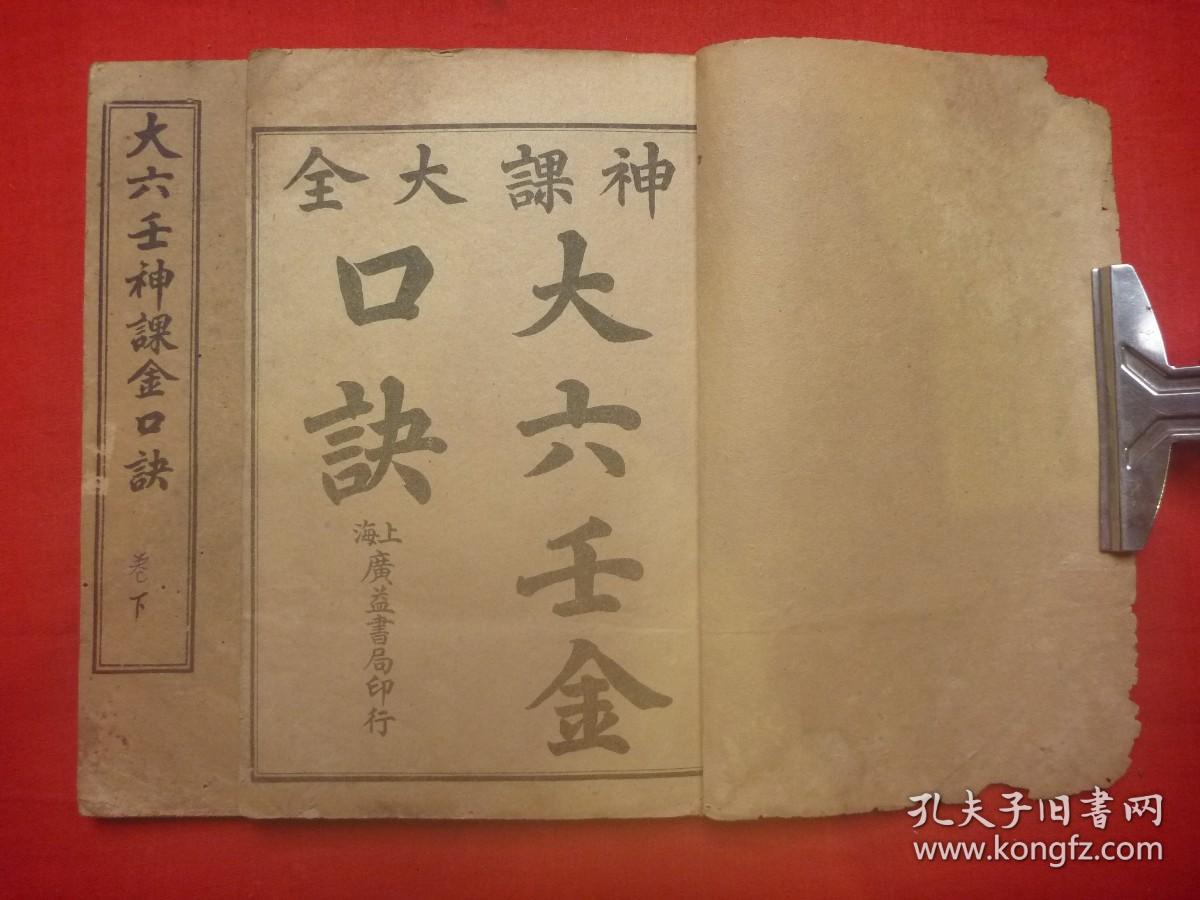 神課大全
大六壬金
口訣
上海
廣益書局印行
大六壬神課金口訣
卷下
孔夫子旧書网
www.kongfz.com